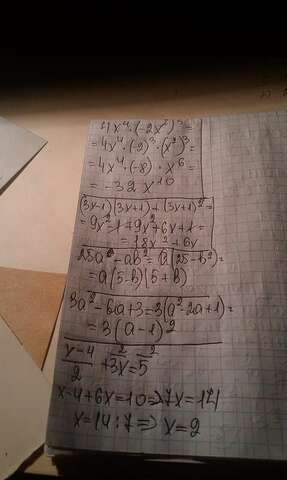 4x⁴·(-2x²)³=
=4x⁴·(-2)³·(x²)³=
=4x⁴·(-8)·x⁶=
=-32x¹⁰
(3x-1)(3x+1)+(3x+1)²=
=9x²-1+9x²+6x+1=
=18x²+6x
25a²-ab²=a(25-b²)=
=a(5-b)(5+b)
3a²-6a+3=3(a²-2a+1)=
=3(a-1)²
x-4/2 + 3x² = 5²
x-4+6x=10=>7x=14
x=14:7=>x=2